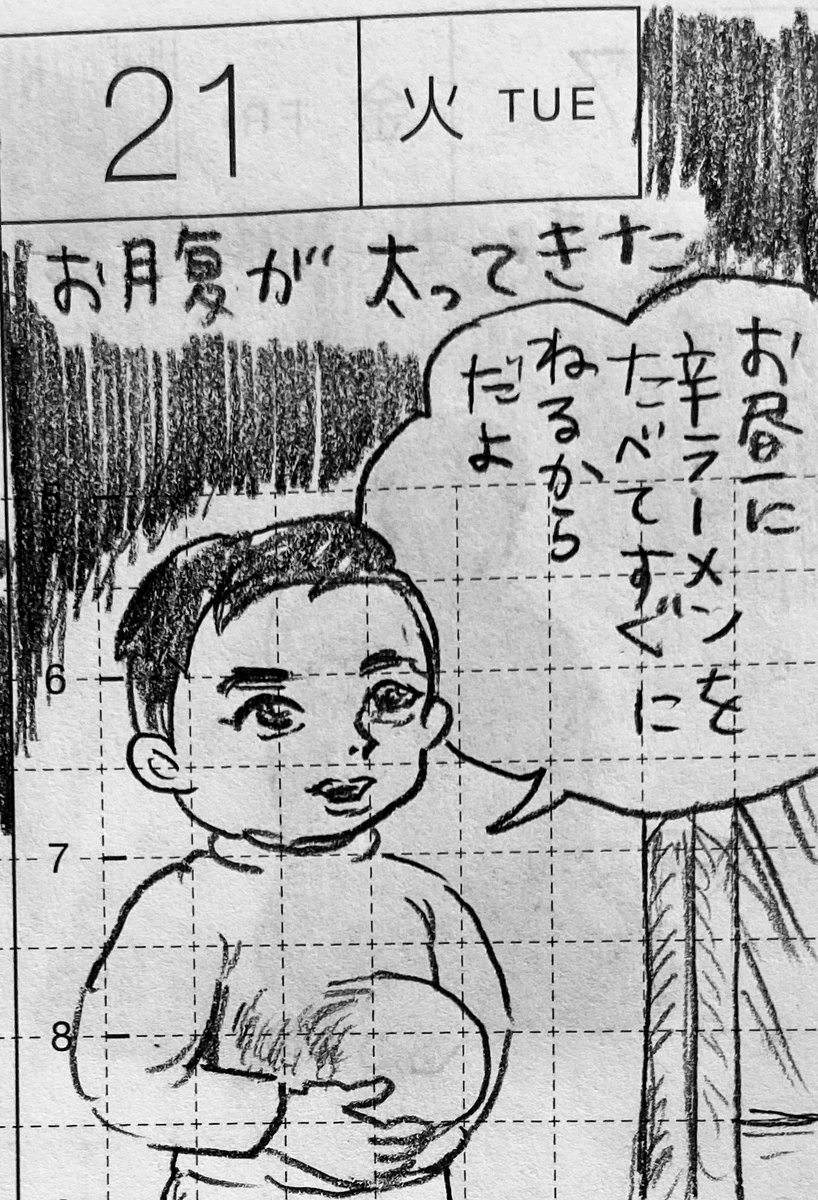 21
火 TUE
お腹が太ってきた
お昼に
辛ラーメンを
たべてすぐに
ねるから
だよ
6
7
8